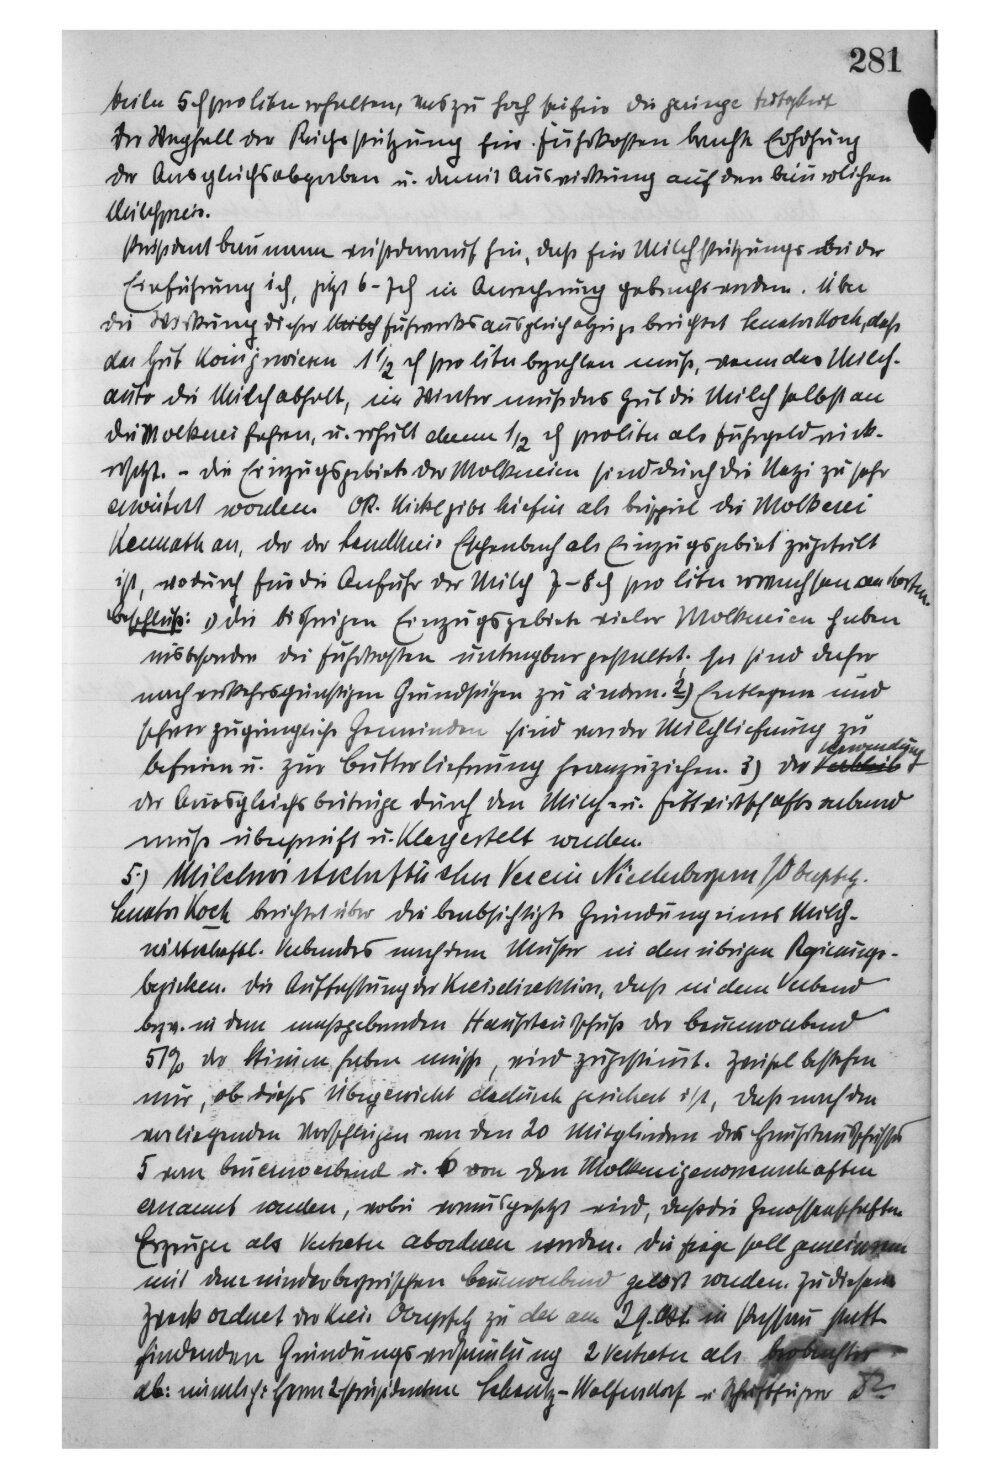 281
teile 5 ₰ pro liter erhalten, was zu hoch sei für die geringe Tätigkeit
Der Wegfall der Reichsstützung für Fuhrkosten brachte Erhöhung
der Ausgleichsabgaben u. damit Auswirkung auf den bäuerlichen
Milchpreis.
Präsident Baumann wies darauf hin, daß für Milchstützungs bei der
Einführung 1 ₰, jetzt 6-7 ₰ in Anrechnung gebracht werden. Über
die Wirkung dieser Milch Fuhrwerksausgleichabzüge berichtet Senator Koch, daß
das Gut Königswiesen 1 1/2 ₰ pro liter bezahlen muß, wenn das Milch-
auto die Milch abholt, im Winter muß das Gut die Milch selbst an
die Molkerei fahren, u. erhält dann 1/2 ₰ pro liter als Fuhrgeld rück-
ersetzt. - Die Einzugsgebiete der Molkereien sind durch die Nazi zu sehr
erweitert worden. OR. Nickl gibt hiefür als beispiel die Molkerei
Kemnath an, der der Landkreis Eschenbach als Einzugsgebiet zugeteilt
ist, wodurch für die Anfuhr der Milch 7-8 ₰ pro liter erwachsen an Kosten.
Beschluß: 1) die bisherigen Einzugsgebiete vieler Molkereien haben
insbesondere die Fuhrkosten untragbar gestaltet. sie sind daher
nach verkehrsgünstigen Grundsätzen zu ändern. 2) Entlegene und
schwer zugängliche Gemeinden sind von der Milchlieferung zu
befreien u. zur Butterlieferung heranzuziehen. 3) der Verbleib Verwendung
der Ausgleichsbeiträge durch den Milch- u. Fettwirtschaftsverband
muß überprüft u. Klargestellt werden.
5.) Milchwirtschaftlicher Verein Niederbayern / Oberpfalz.
Senator Koch berichtet über die beabsichtigte Gründung eines Milch-
wirtschaftl. Verbandes nach dem Muster in den übrigen Regierungs-
bezirken. Die Auffassung der Kreisdirektion, daß in dem Verband
bezw. in dem maßgebenden Hauptausschuß der Bauernverband
51% der Stimmen haben müsse, wird zugestimmt. Zweifel bestehen
nur, ob dieses Übergewicht dadurch gesichert ist, daß nach den
vorliegenden Vorschlägen von den 20 Mitgliedern des Hauptausschusses
5 vom Bauernverband u. 6 von den Molkereigenossenschaften
ernannt werden, wobei vorausgesetzt wird, daß die Genossenschaften
Erzeuger als Vertreter abordnen werden. Die Frage soll gemeinsam
mit dem niederbayrischen Bauernverband gelöst werden. Zu diesem
Zweck ordnet der Kreis Oberpfalz zu der am 29. Okt. in Passau statt-
findenden Gründungsversammlung 2 Vertreter als Beobachter
ab: nämlich: Herrn 2. Präsidenten -Wolfersdorf u. Schriftführer Dr.